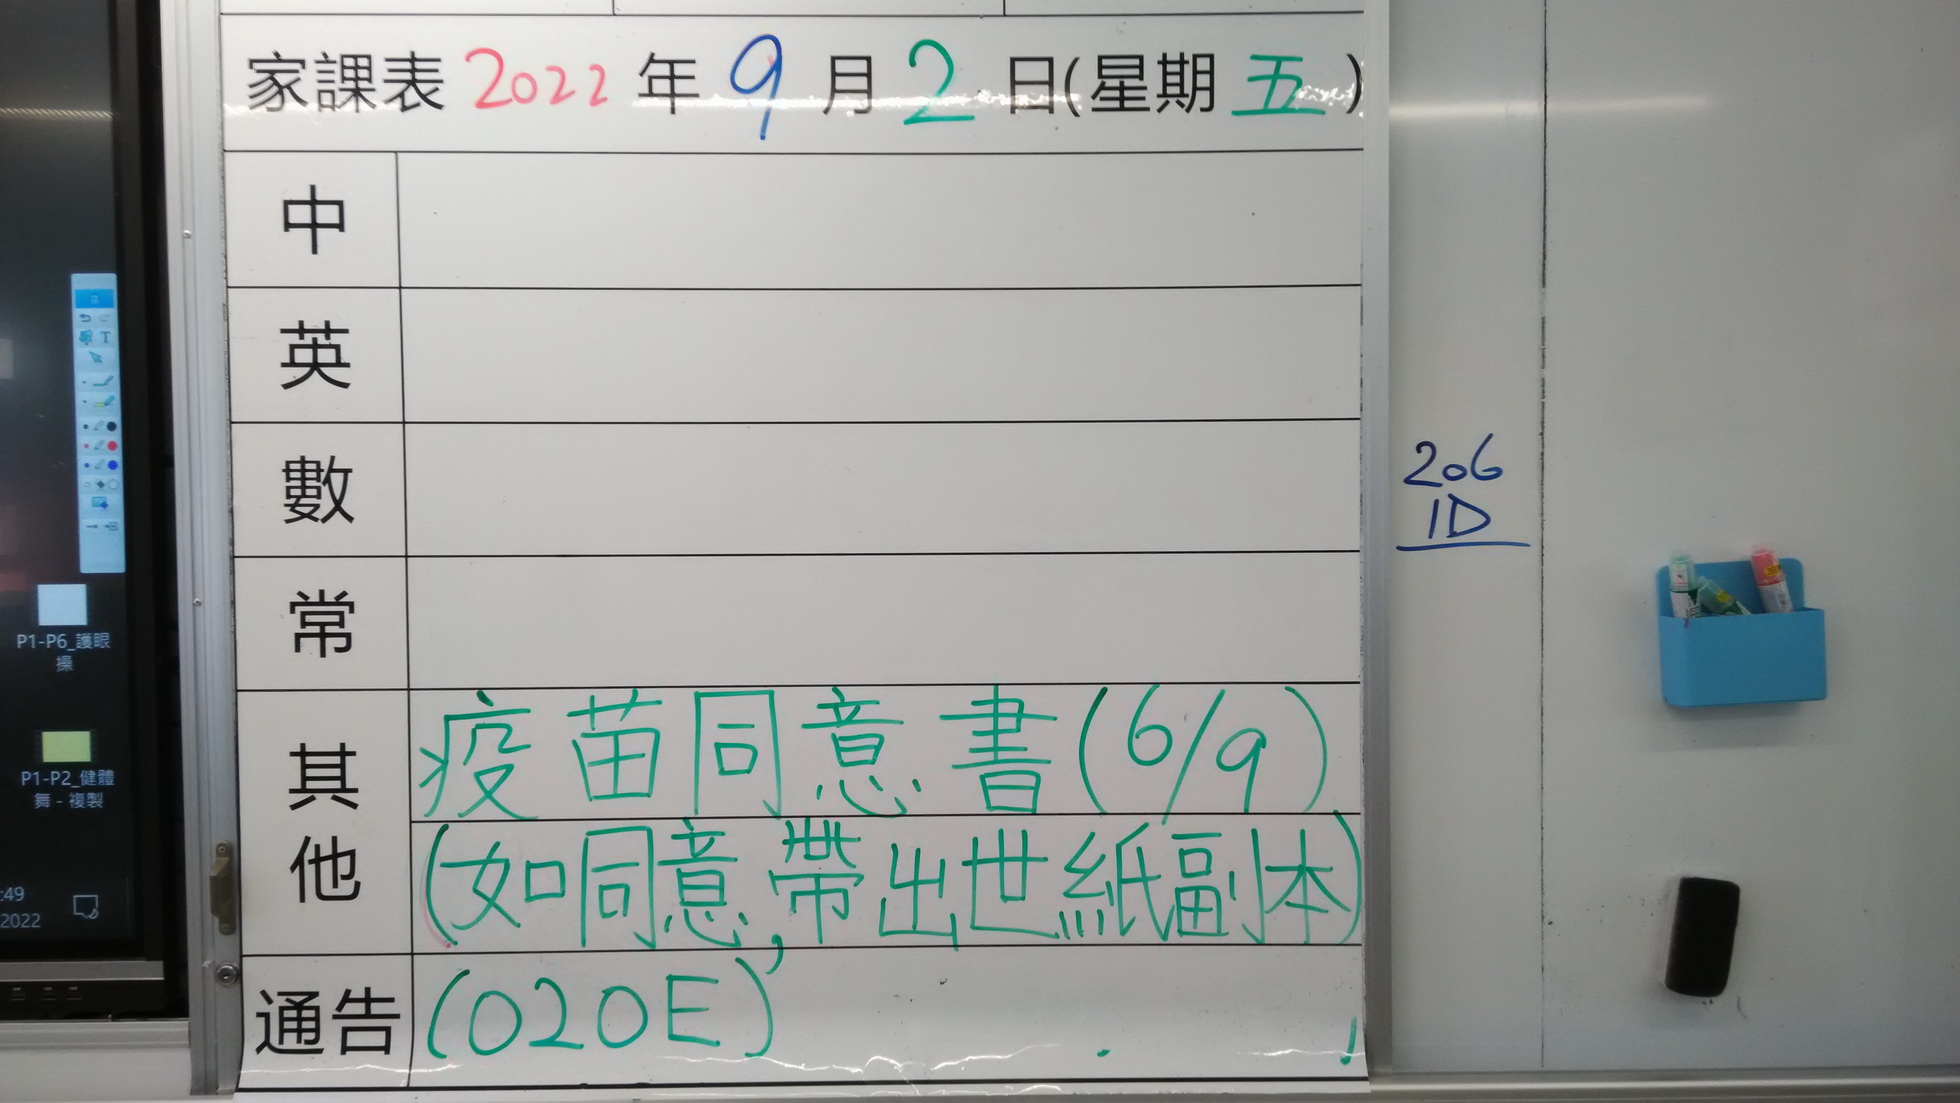 家課表 2022 年 9 月 2 日(星期 五 )
中
英
數
常
其他
疫苗同意書(6/9)
(如同意,帶出世紙副本)
通告 (020E)
206
1D
P1-P6_護眼
操
P1-P2_健體
舞 - 複製
:49
2022